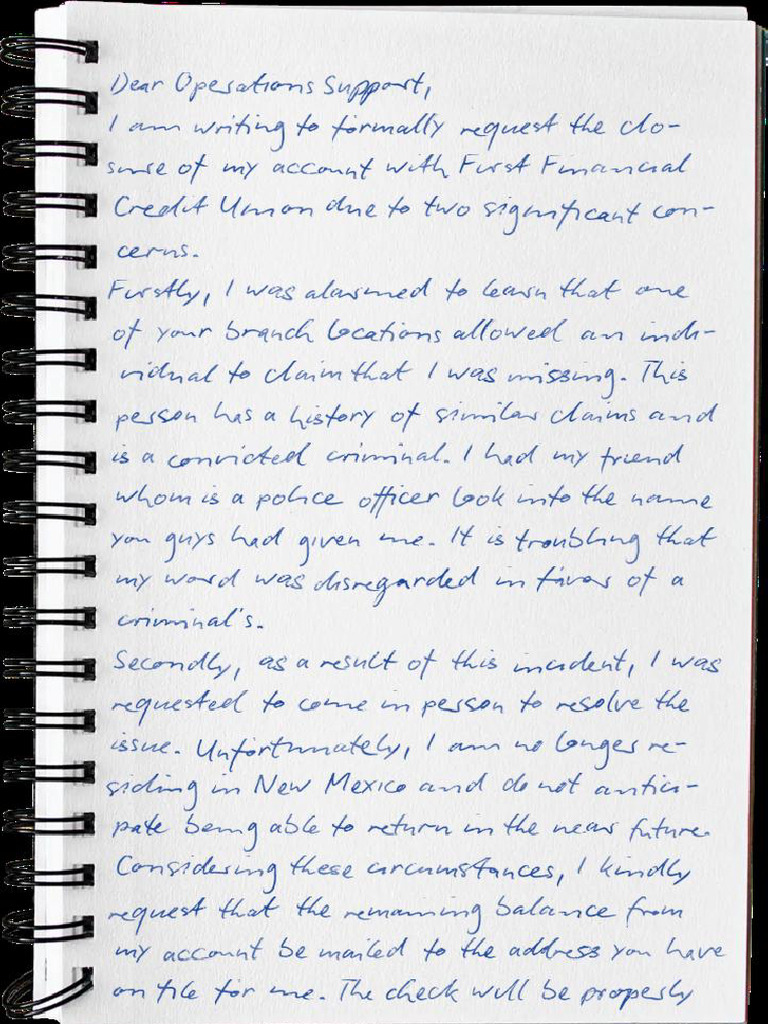 Dear Operations Support,
I am writing to formally request the clo-
sure of my account with First Financial
Credit Union due to two significant con-
cerns.
Firstly, I was alarmed to learn that one
of your branch locations allowed an indi-
vidual to claim that I was missing. This
person has a history of similar claims and
is a convicted criminal. I had my friend
whom is a police officer look into the name
you guys had given me. It is troubling that
my word was disregarded in favor of a
criminal's.
Secondly, as a result of this incident, I was
requested to come in person to resolve the
issue. Unfortunately, I am no longer re-
siding in New Mexico and do not antici-
pate being able to return in the near future.
Considering these circumstances, I kindly
request that the remaining balance from
my account be mailed to the address you have
on file for me. The check will be properly